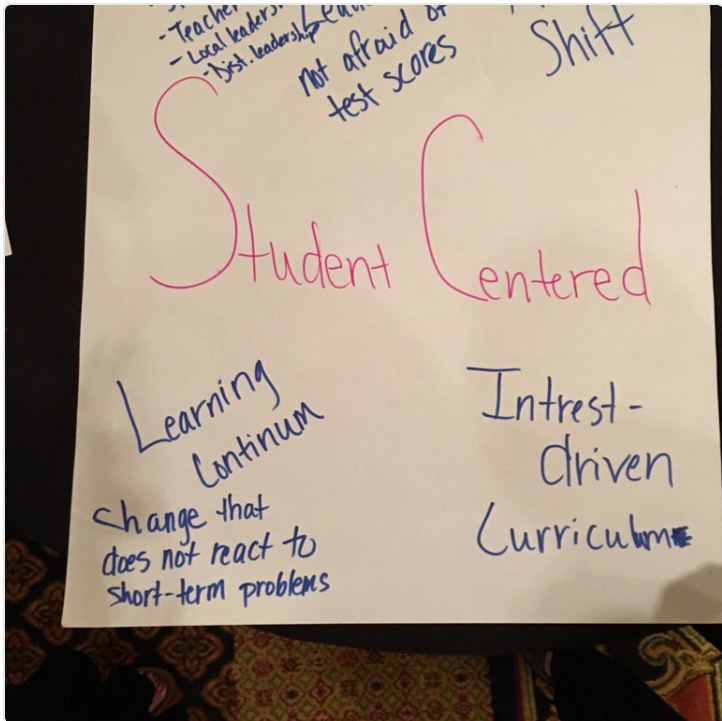 - Teacher
- Local leaders
- Dist. leadership
not afraid of
test scores
Shift
Student Centered
Learning
Continum
change that
does not react to
short-term problems
Intrest-
driven
Curriculum